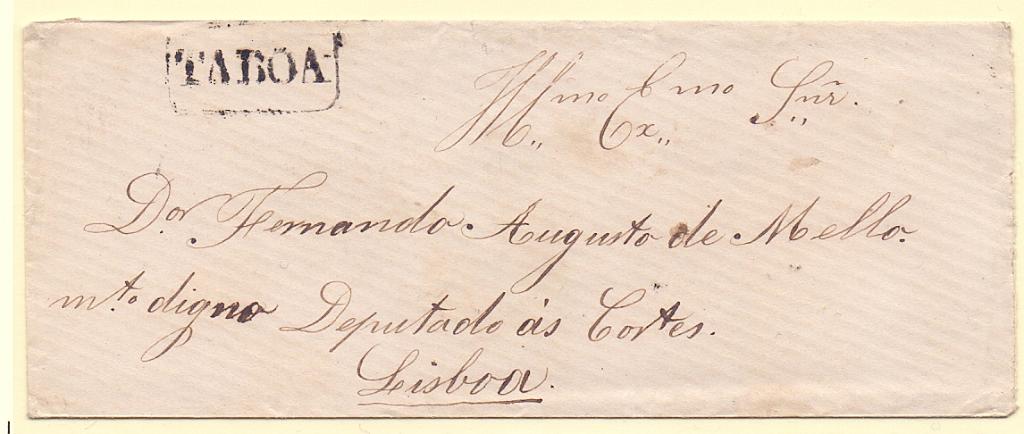 TABOA
Illmo Exmo Snr.
Dor Fernando Augusto de Mello.
mto digno Deputado ás Cortes.
Lisboa.